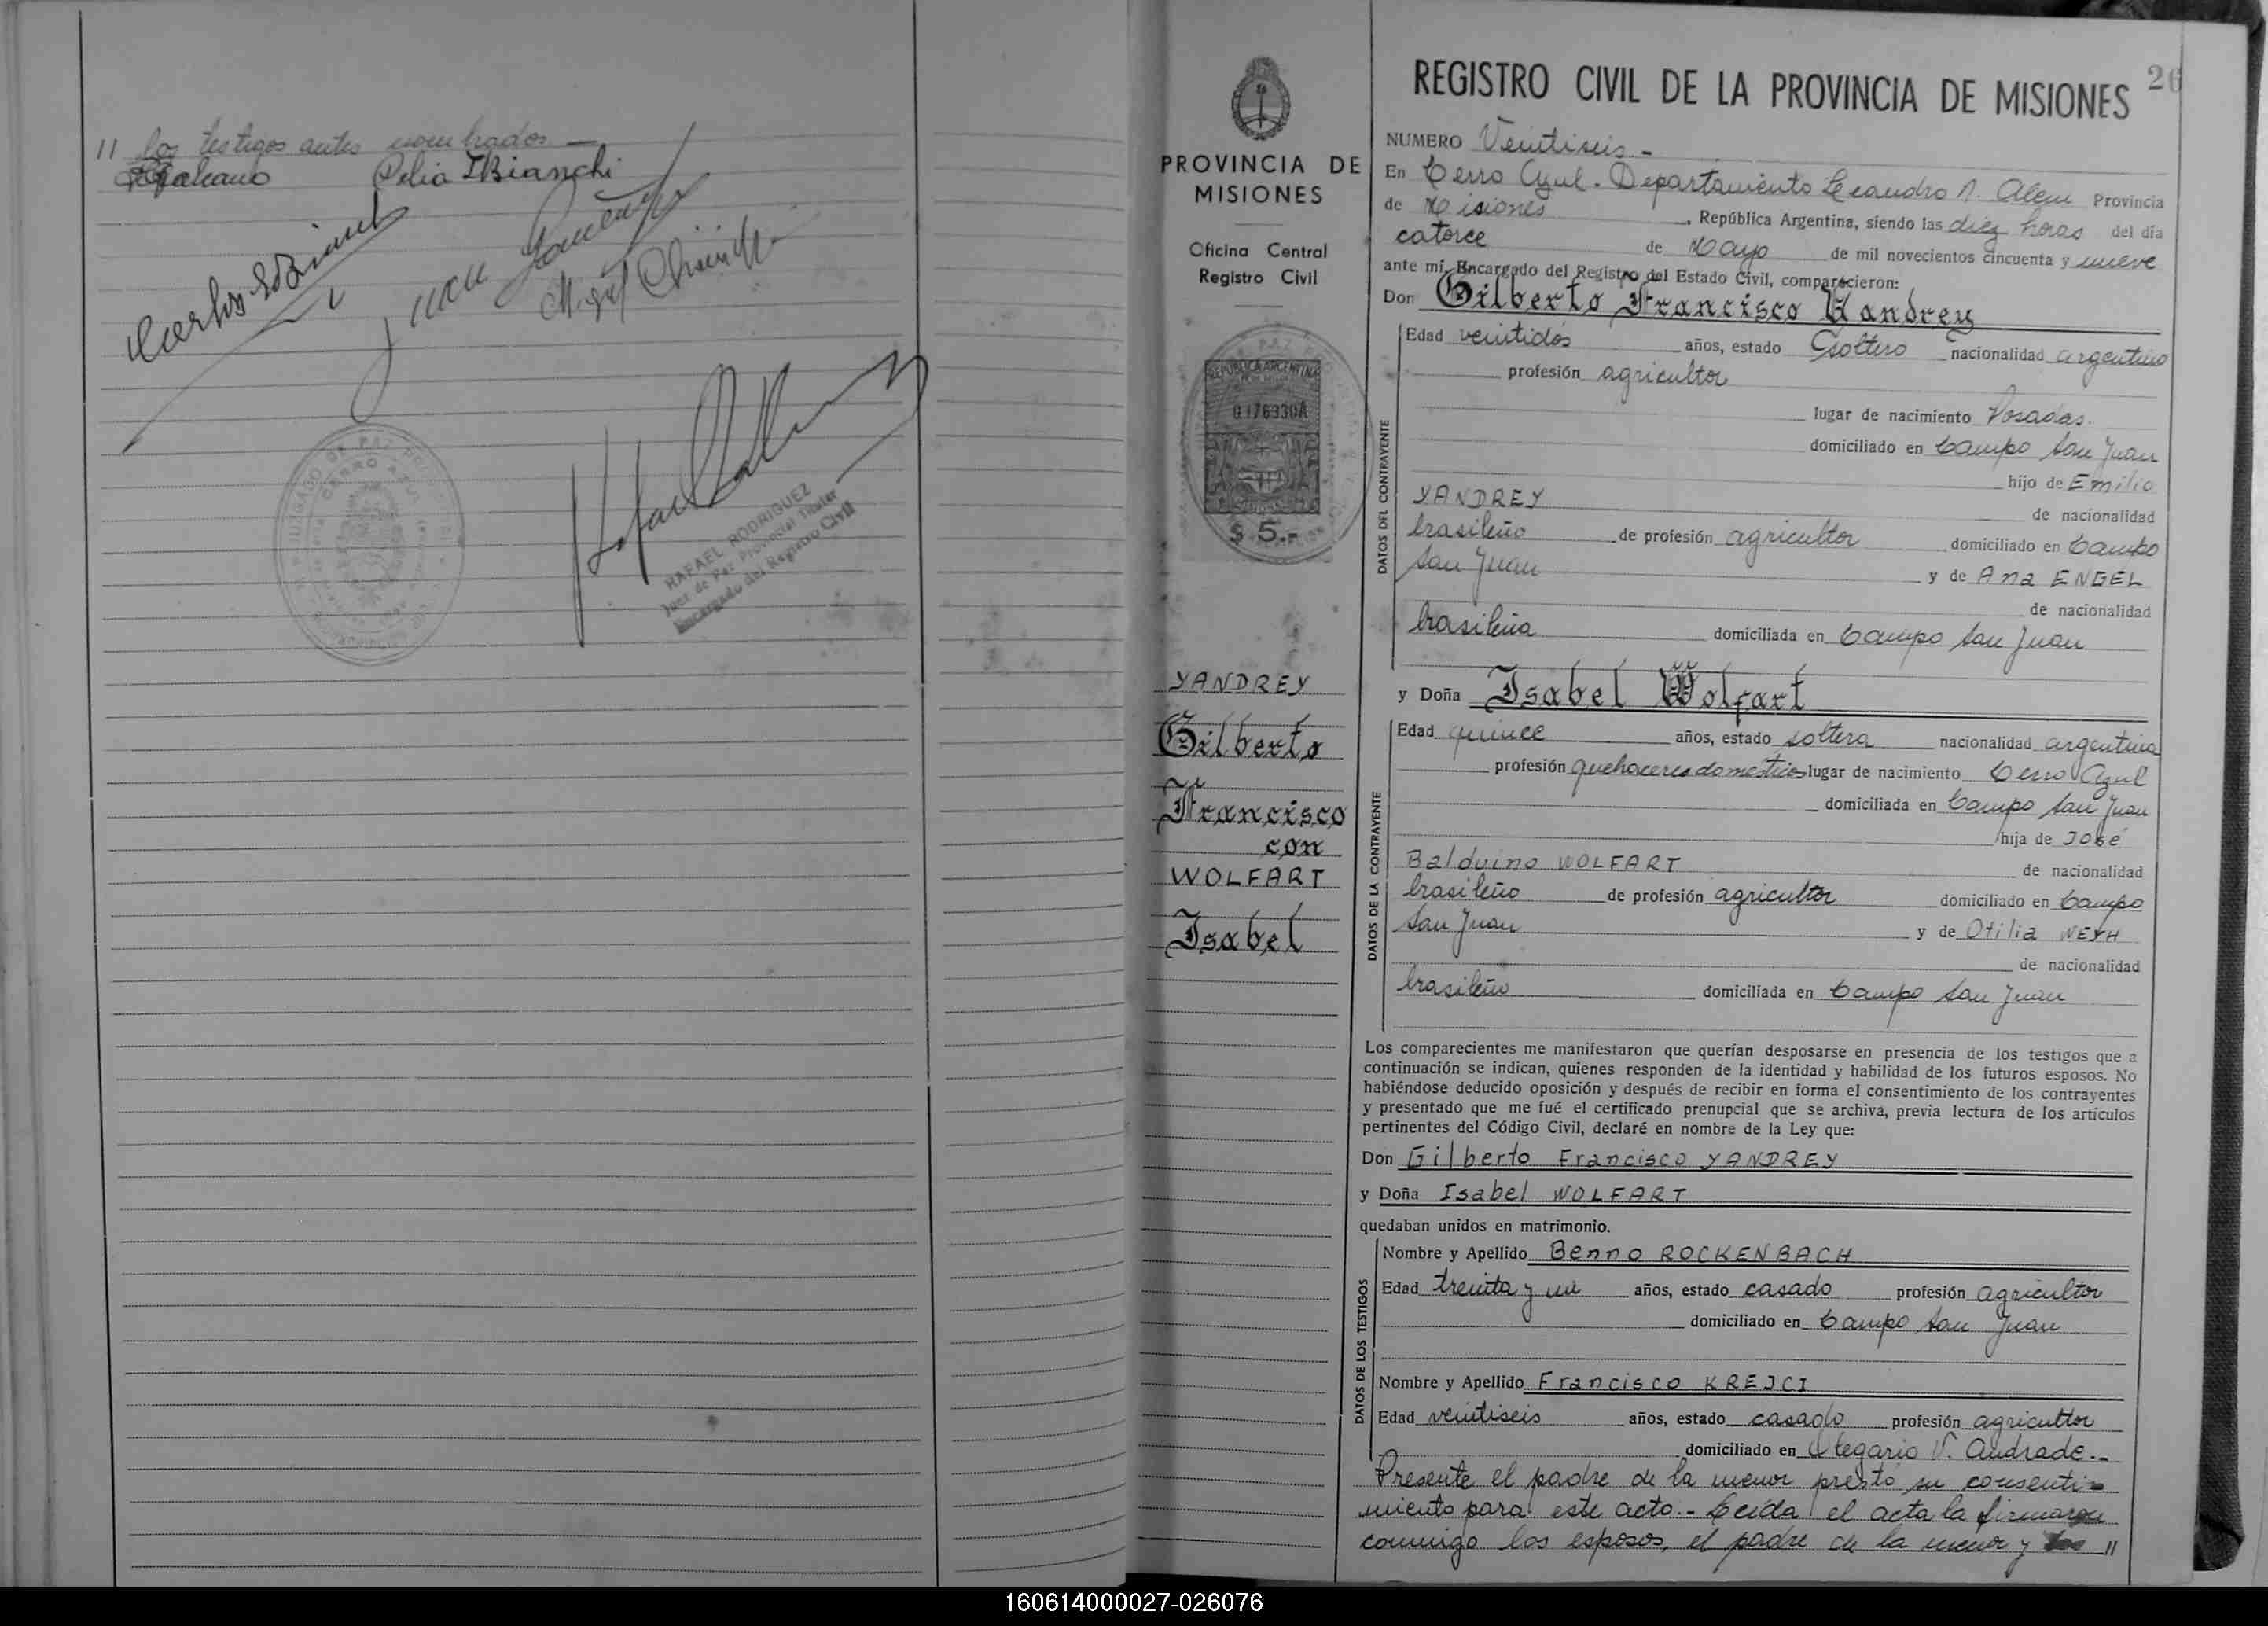 11 los testigos antes nombrados —
Galeano Delia I Bianchi
Carlos E Bianchi
Juan
Miguel
JUZGADO DE PAZ
CERRO AZUL
RAFAEL RODRIGUEZ
Juez de Paz Provincial Titular
Encargado del Registro Civil
PROVINCIA DE
MISIONES
Oficina Central
Registro Civil
REPUBLICA ARGENTINA
0176330A
$ 5.-
YANDREY
Gilberto
Francisco
con
WOLFART
Isabel
26
REGISTRO CIVIL DE LA PROVINCIA DE MISIONES
NUMERO Veintiseis.-
En Cerro Azul. Departamento Leandro N. Alem Provincia
de Misiones, República Argentina, siendo las diez horas del día
catorce de Mayo de mil novecientos cincuenta y nueve
ante mí, Encargado del Registro del Estado Civil, comparecieron:
Don Gilberto Francisco Yandrey
DATOS DEL CONTRAYENTE
Edad veintidos años, estado Soltero nacionalidad argentino
profesión agricultor
lugar de nacimiento Posadas.
domiciliado en Campo San Juan
hijo de Emilio
YANDREY de nacionalidad
brasileño de profesión agricultor domiciliado en Campo
San Juan y de Ana ENGEL
de nacionalidad
brasileña domiciliada en Campo San Juan
y Doña Isabel Wolfart
DATOS DE LA CONTRAYENTE
Edad quince años, estado soltera nacionalidad argentina
profesión quehaceres domesticos lugar de nacimiento Cerro Azul
domiciliada en Campo San Juan
hija de José
Balduino WOLFART de nacionalidad
brasileño de profesión agricultor domiciliado en Campo
San Juan y de Otilia WEYH
de nacionalidad
brasileño domiciliada en Campo San Juan
Los comparecientes me manifestaron que querían desposarse en presencia de los testigos que a
continuación se indican, quienes responden de la identidad y habilidad de los futuros esposos. No
habiéndose deducido oposición y después de recibir en forma el consentimiento de los contrayentes
y presentado que me fué el certificado prenupcial que se archiva, previa lectura de los artículos
pertinentes del Código Civil, declaré en nombre de la Ley que:
Don Gilberto Francisco YANDREY
y Doña Isabel WOLFART
quedaban unidos en matrimonio.
DATOS DE LOS TESTIGOS
Nombre y Apellido Benno ROCKENBACH
Edad treinta y un años, estado casado profesión agricultor
domiciliado en Campo San Juan
Nombre y Apellido Francisco KREJCI
Edad veintiseis años, estado casado profesión agricultor
domiciliado en Olegario V. Andrade.-
Presente el padre de la menor prestó su consenti-
miento para este acto.- Leída el acta la firmaron
conmigo los esposos, el padre de la menor y los 11
160614000027-026076